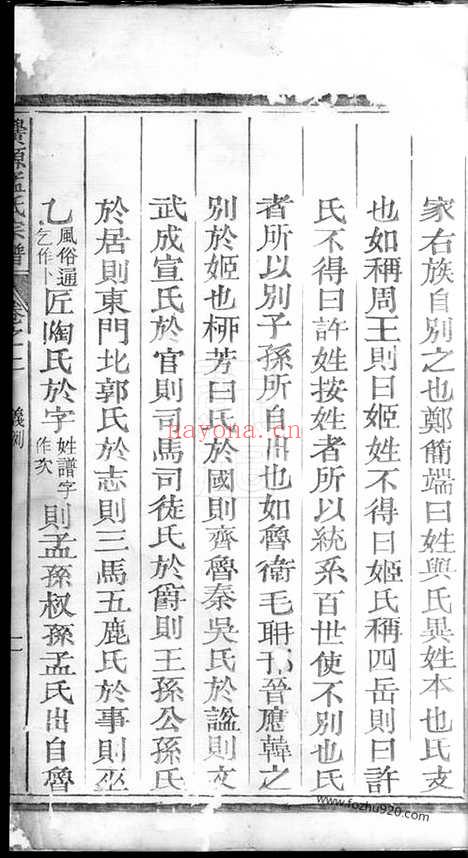 家右族自别之也鄭簡端曰姓與氏異姓本也氏支
也如稱周王則曰姬姓不得曰姬氏稱四岳則曰許
氏不得曰許姓按姓者所以統系百世使不别也氏
者所以别子孫所自出也如魯衛毛聃邘晉應韓之
别於姬也栁芳曰氏於國則齊魯秦吳氏於謚則文
武成宣氏於官則司馬司徒氏於爵則王孫公孫氏
於居則東門北郭氏於志則三馬五鹿氏於事則巫
乙風俗通乞作卜匠陶氏於字姓譜字作次則孟孫叔孫孟氏出自魯
源孟氏宗譜
卷之
義例
hayona.cn
www.fozhu920.com